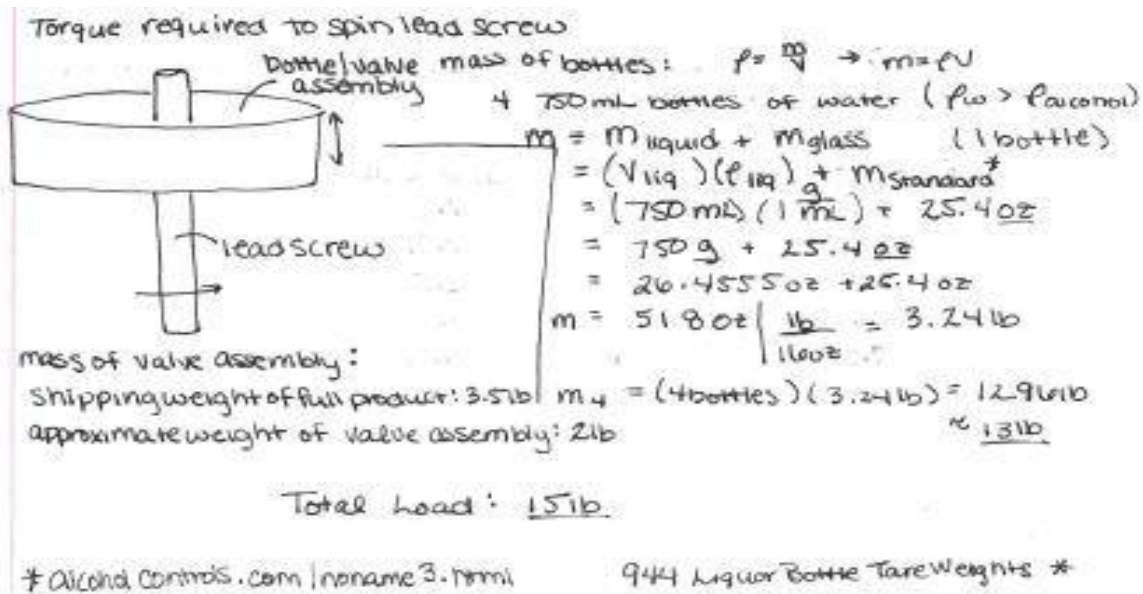 Torque required to spin lead screw
bottle/valve assembly
lead screw
mass of bottles: ρ = m/V → m = ρV
4 750 mL bottles of water (ρw > ρalcohol)
m = m liquid + m glass (1 bottle)
= (V liq)(ρ liq) + m standard*
= (750 mL)(1 g/mL) + 25.4 oz
= 750 g + 25.4 oz
= 26.4555 oz + 25.4 oz
m = 51.8 oz | lb/16oz = 3.24 lb
m4 = (4 bottles)(3.24 lb) = 12.96 lb
≈ 13 lb
mass of valve assembly:
Shipping weight of full product: 3.5 lb
approximate weight of valve assembly: 2 lb
Total Load: 15 lb
* alcohol controls.com/noname3.html
944 Liquor Bottle Tare Weights *